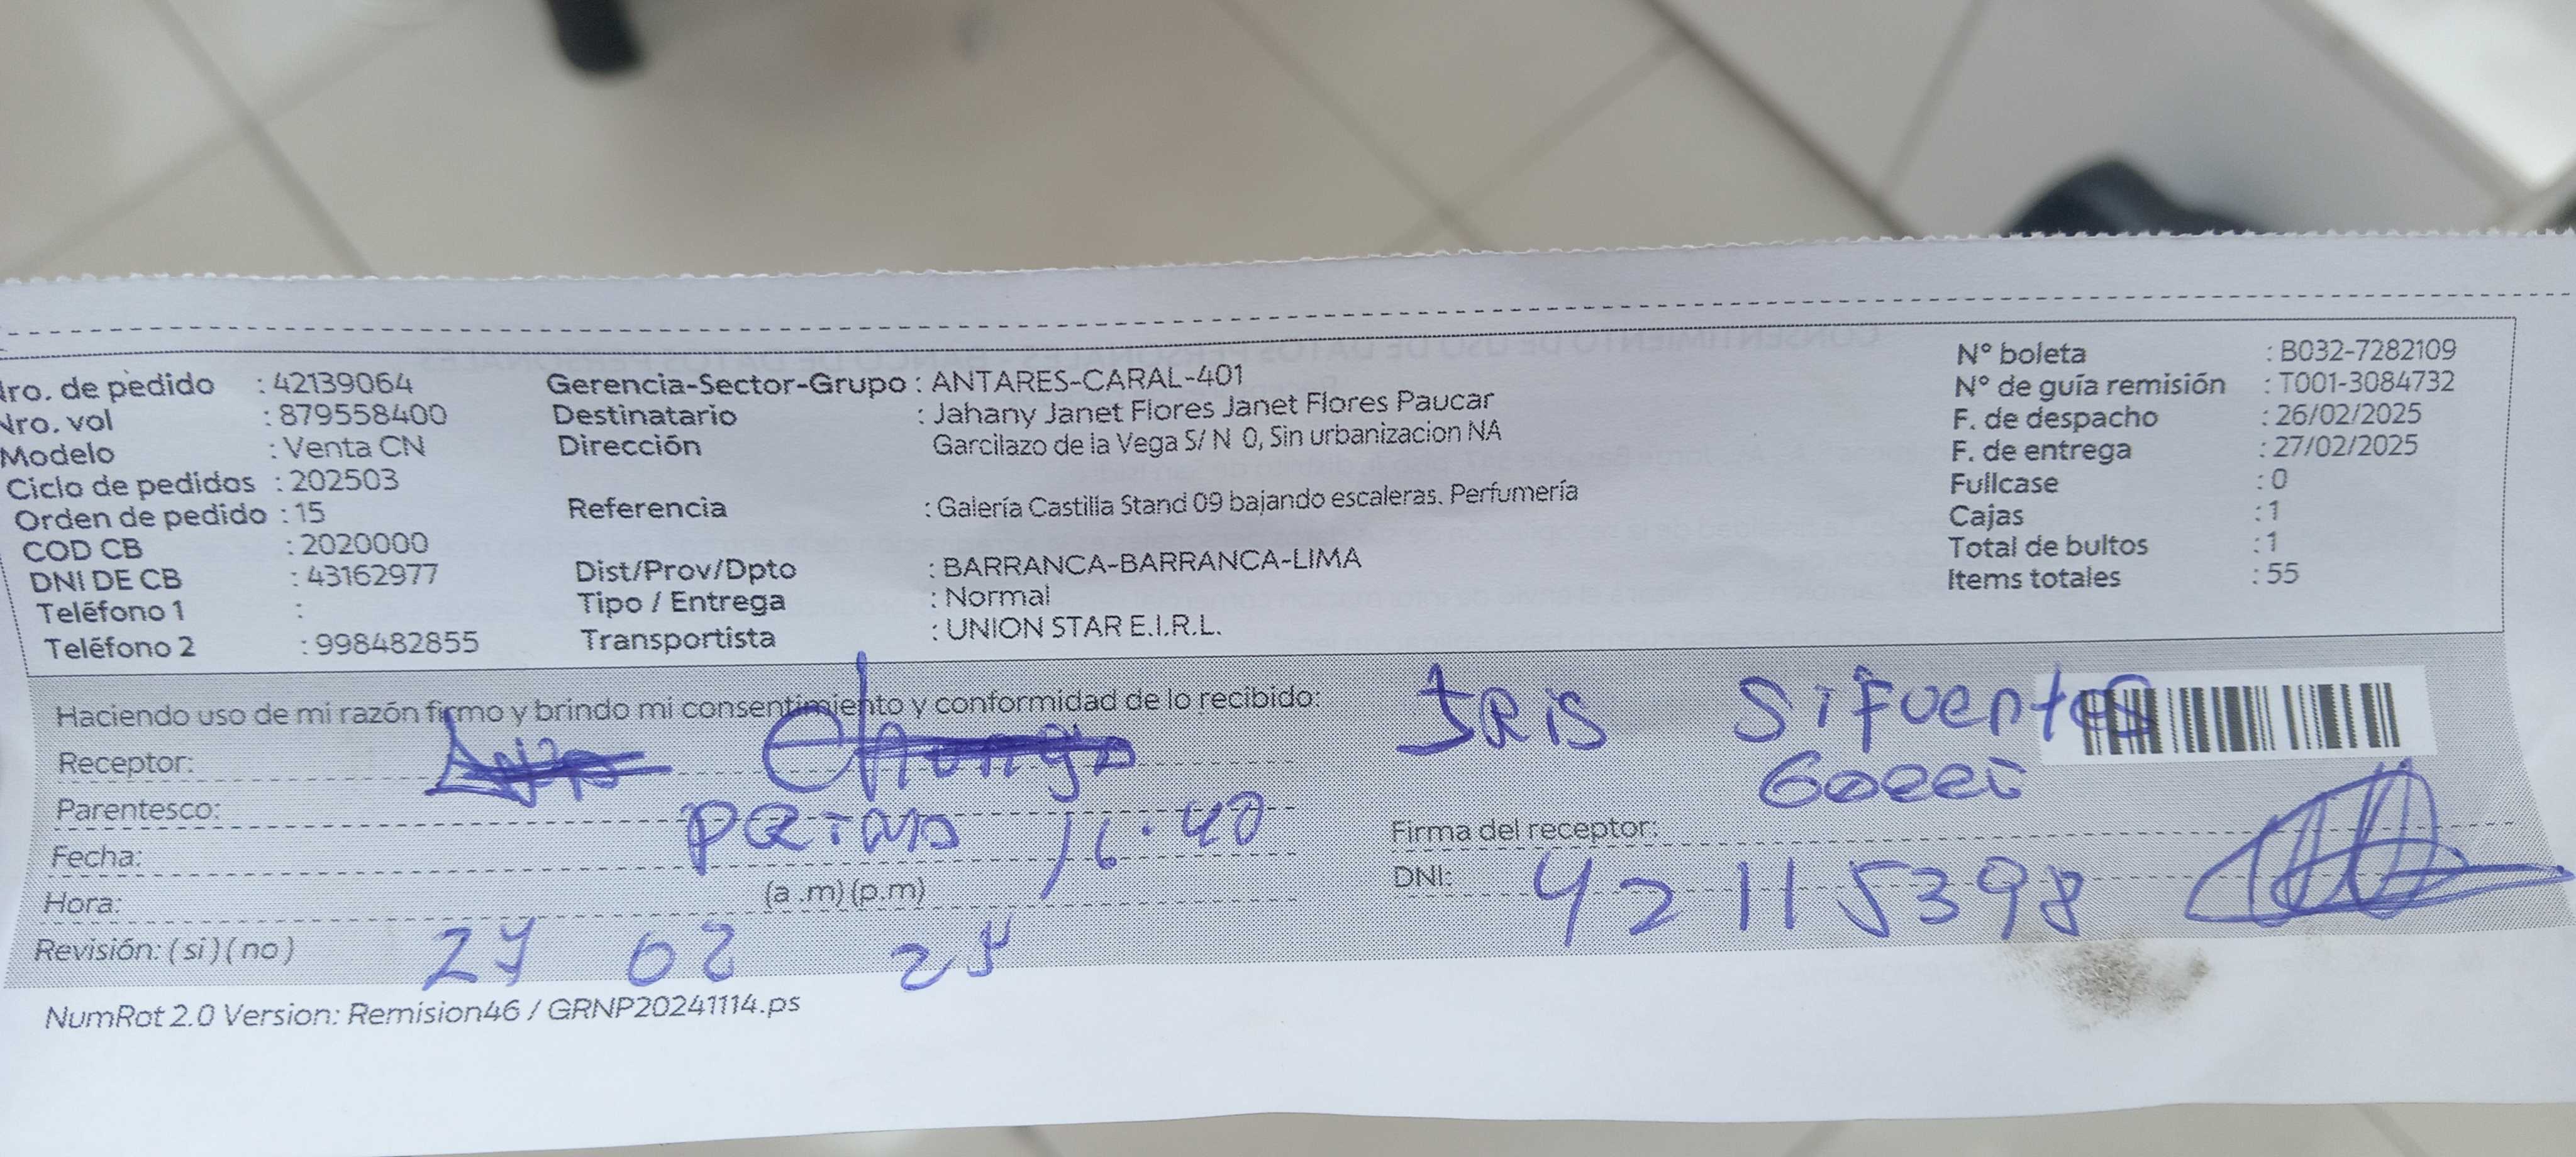 Nro. de pedido : 42139064
Nro. vol : 879558400
Modelo : Venta CN
Ciclo de pedidos : 202503
Orden de pedido : 15
COD CB : 2020000
DNI DE CB : 43162977
Teléfono 1 :
Teléfono 2 : 998482855
Gerencia-Sector-Grupo : ANTARES-CARAL-401
Destinatario : Jahany Janet Flores Janet Flores Paucar
Dirección Garcilazo de la Vega S/ N 0, Sin urbanizacion NA
Referencia : Galería Castilla Stand 09 bajando escaleras. Perfumería
Dist/Prov/Dpto : BARRANCA-BARRANCA-LIMA
Tipo / Entrega : Normal
Transportista : UNION STAR E.I.R.L.
N° boleta : B032-7282109
N° de guía remisión : T001-3084732
F. de despacho : 26/02/2025
F. de entrega : 27/02/2025
Fullcase : 0
Cajas : 1
Total de bultos : 1
Items totales : 55
Haciendo uso de mi razón firmo y brindo mi consentimiento y conformidad de lo recibido:
Receptor:
Parentesco: PRima
Fecha: 16.40
Hora: (a .m) (p.m)
Revisión: ( si ) ( no ) 27 02 25
IRiS SiFuentes
Firma del receptor:
DNI: 42115398
NumRot 2.0 Version: Remision46 / GRNP20241114.ps